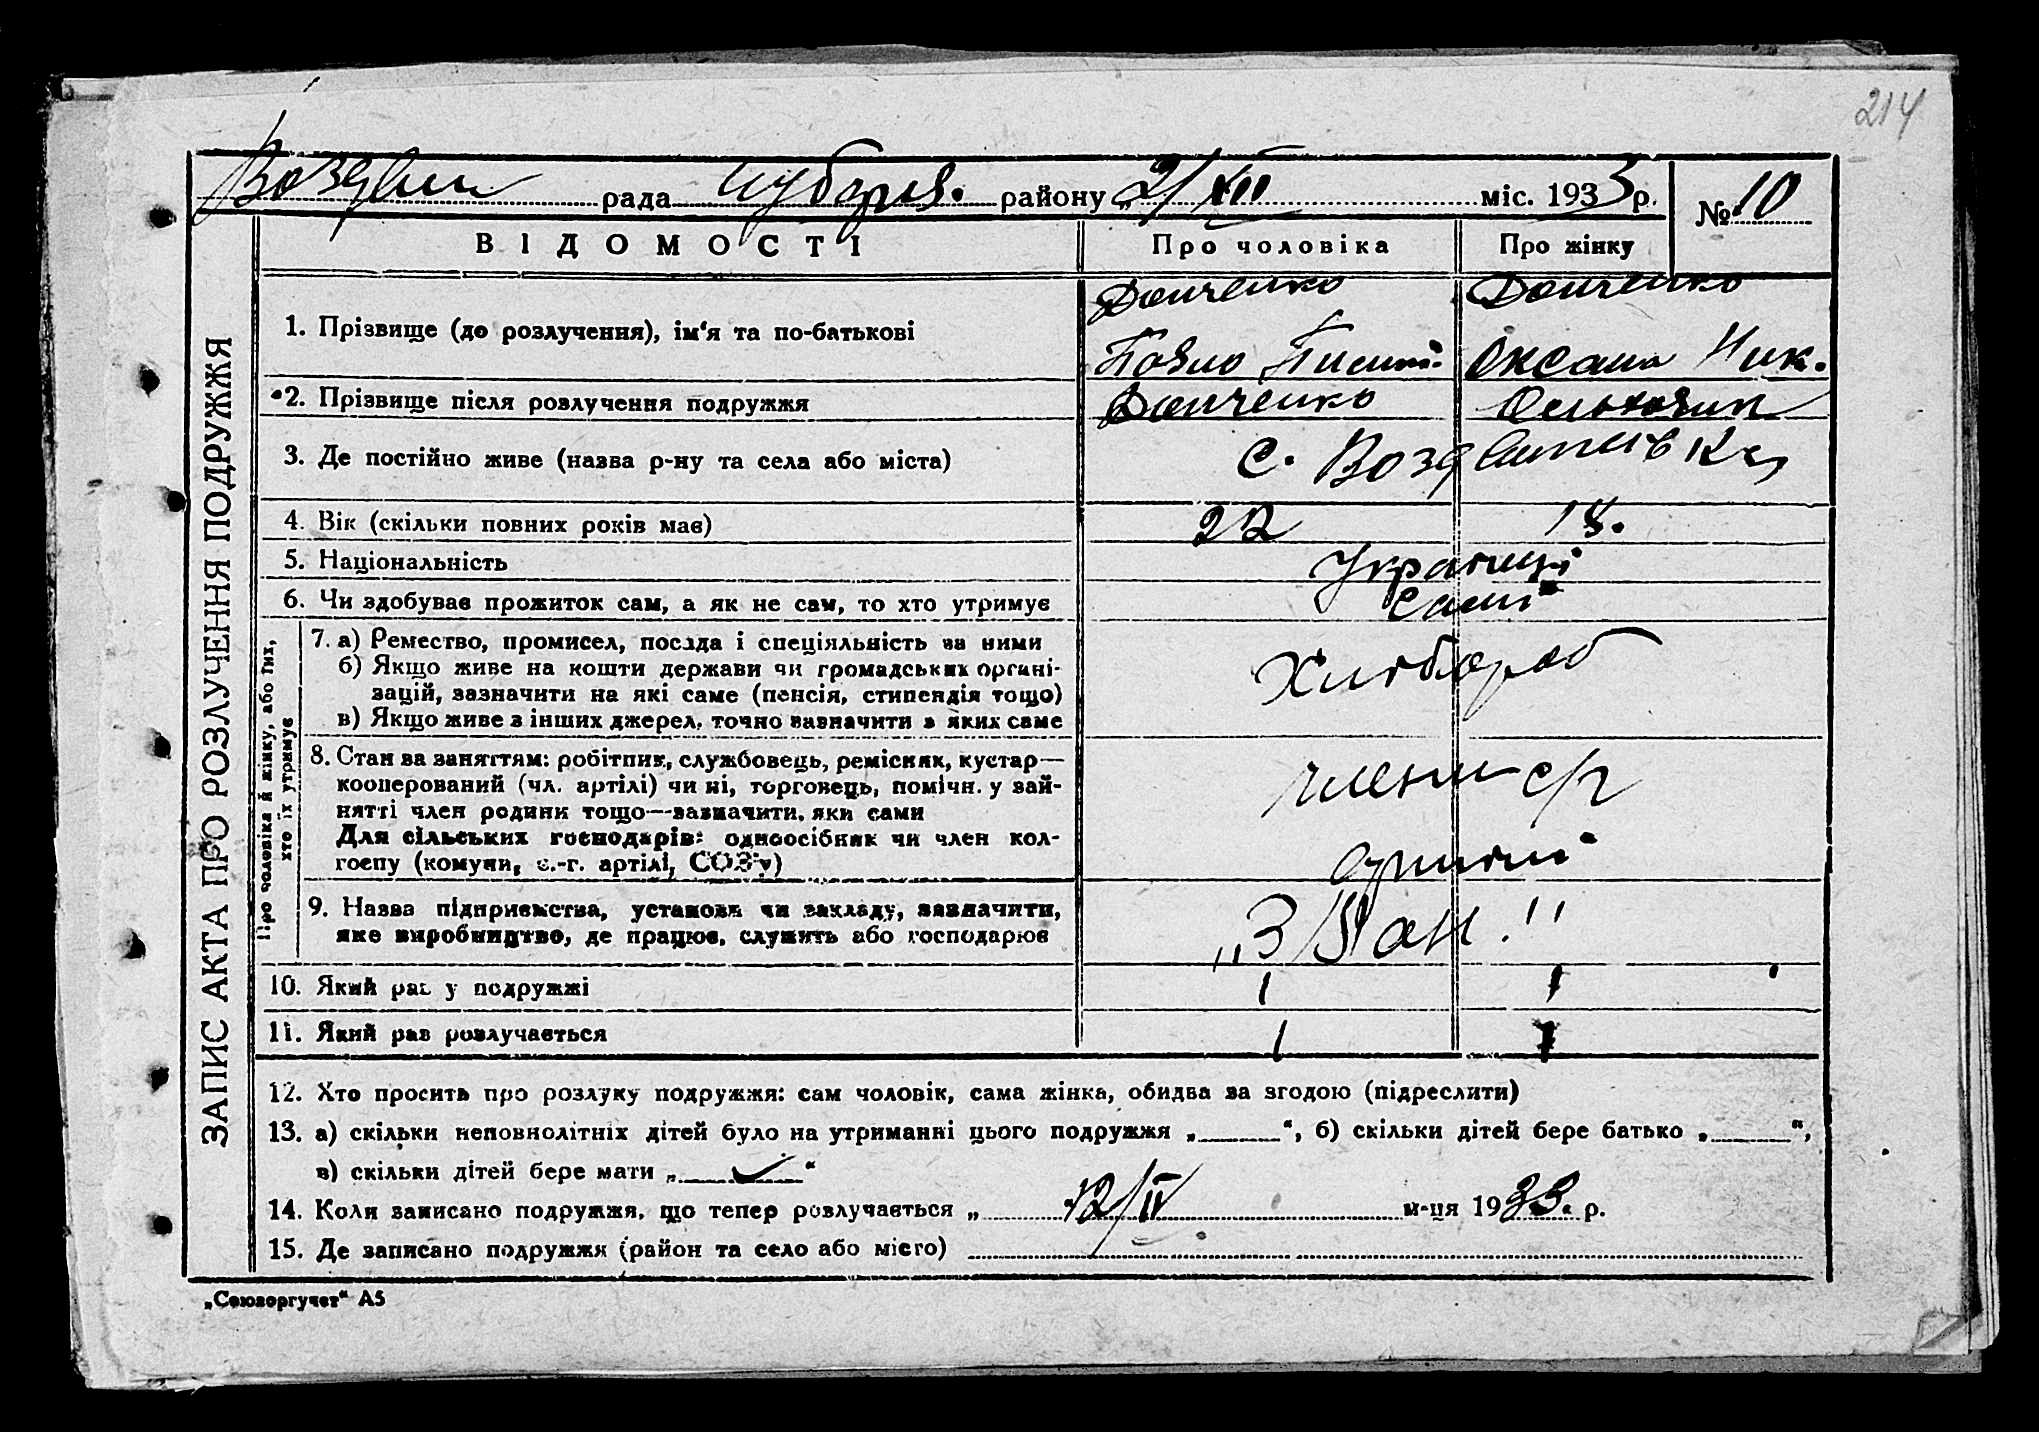 214
Воздвиж рада Чубарів. району „2/XII міс. 1933 р. № 10
ВІДОМОСТІ Про чоловіка Про жінку
Донченко Донченко
1. Прізвище (до розлучення), ім'я та по-батькові
Павло Пилип. Оксана Ник.
2. Прізвище після розлучення подружжя Донченко
3. Де постійно живе (назва р-ну та села або міста) с. Воздвижівка
4. Вік (скільки повних років має) 22 18.
5. Національність Українці
6. Чи здобуває прожиток сам, а як не сам, то хто утримує Самі
ЗАПИС АКТА ПРО РОЗЛУЧЕННЯ ПОДРУЖЖЯ
Про чоловіка й жінку, або тих,
хто їх утримує
7. а) Ремество, промисел, посада і спеціяльність за ними
б) Якщо живе на кошти держави чи громадських органі-
зацій, зазначити на які саме (пенсія, стипендія тощо) Хлібороб
в) Якщо живе з інших джерел, точно зазначити з яких саме
8. Стан за заняттям: робітник, службовець, ремісник, кустар—
кооперований (чл. артілі) чи ні, торговець, помічн. у зай- члени с/г
нятті член родини тощо—зазначити, яки сами
Для сільських господарів: одноосібник чи член кол-
госпу (комуни, с.-г. артілі, СОЗу) артілі
9. Назва підприємства, установи чи закладу, зазначити,
яке виробництво, де працює, служить або господарює
10. Який раз у подружжі 1 1
11. Який раз розлучається 1 1
12. Хто просить про розлуку подружжя: сам чоловік, сама жінка, обидва за згодою (підреслити)
13. а) скільки неповнолітніх дітей було на утриманні цього подружжя „ “, б) скільки дітей бере батько „ “,
в) скільки дітей бере мати „ “
14. Коли записано подружжя, що тепер розлучається „ 12/IV м-ця 1933. р.
15. Де записано подружжя (район та село або місто)
„Союзоргучет“ А5